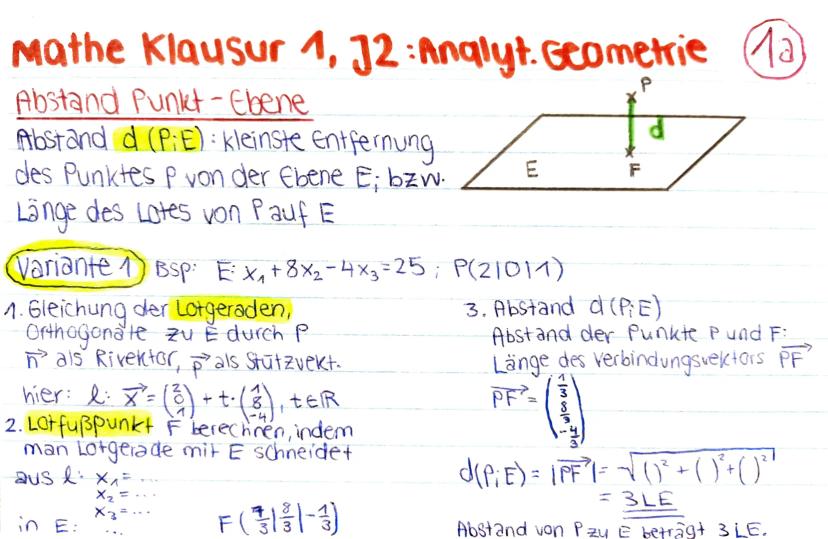 Mathe Klausur 1, J2: Analyt. Geometrie
1a
Abstand Punkt-Ebene
Abstand d(P;E): kleinste Entfernung
des Punktes P von der Ebene E; bzw.
Länge des Lotes von P auf E
P
d
E
F
Variante 1 Bsp: E: x₁+8x₂-4x₃=25; P(2|0|1)
1. Gleichung der Lotgeraden,
Orthogonale zu E durch P
n⃗ als Rivektor, p⃗ als Stützvekt.
hier: l: x⃗ = (2 0 1) + t·(1 8 -4), t∈ℝ
2. Lotfußpunkt F berechnen, indem
man Lotgerade mit E schneidet
aus l: x₁= ...
x₂= ...
x₃= ...
in E: ...
F(7/3|8/3|-1/3)
3. Abstand d(P;E)
Abstand der Punkte P und F:
Länge des Verbindungsvektors PF⃗
PF⃗ = (1/3 8/3 -4/3)
d(P;E) = |PF⃗| = √()²+()²+()²
= 3LE
Abstand von P zu E beträgt 3 LE.